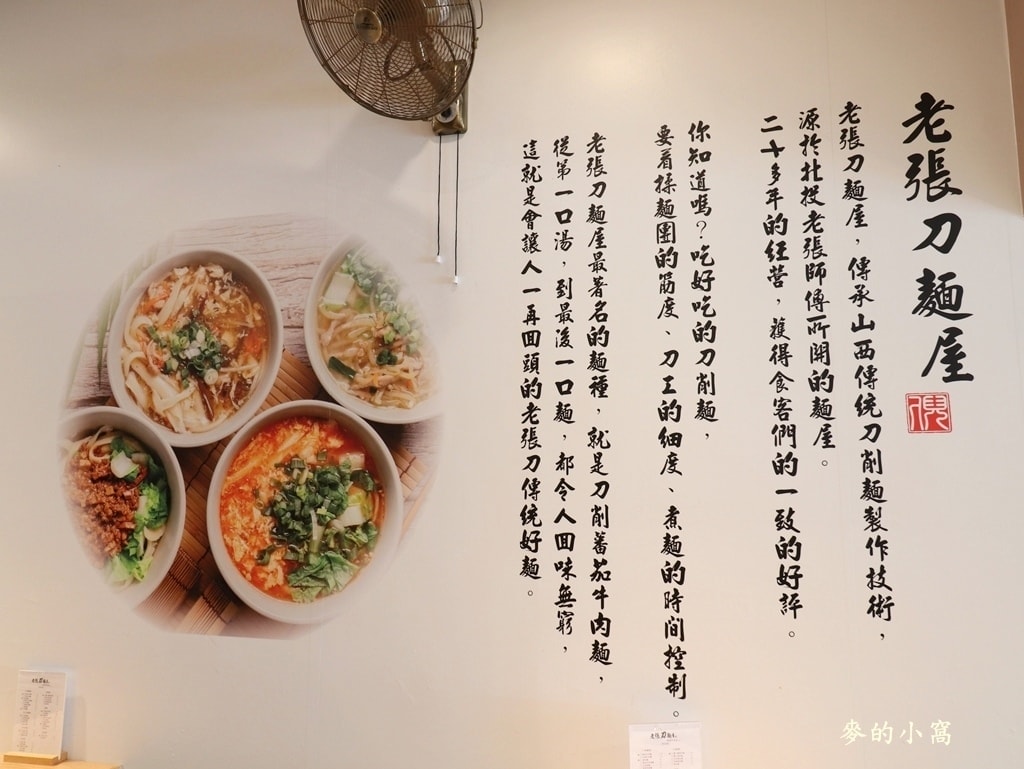 老張刀麵屋
老張刀麵屋，傳承山西傳統刀削麵製作技術，
源於北投老張師傅所開的麵屋。
二十多年的經營，獲得食客們的一致的好評。
你知道嗎？吃好吃的刀削麵，
要看揉麵團的筋度、刀工的細度、煮麵的時間控制。
老張刀麵屋最著名的麵種，就是刀削蕃茄牛肉麵，
從第一口湯，到最後一口麵，都令人回味無窮，
這就是會讓人一再回頭的老張刀傳統好麵。
麥的小窩